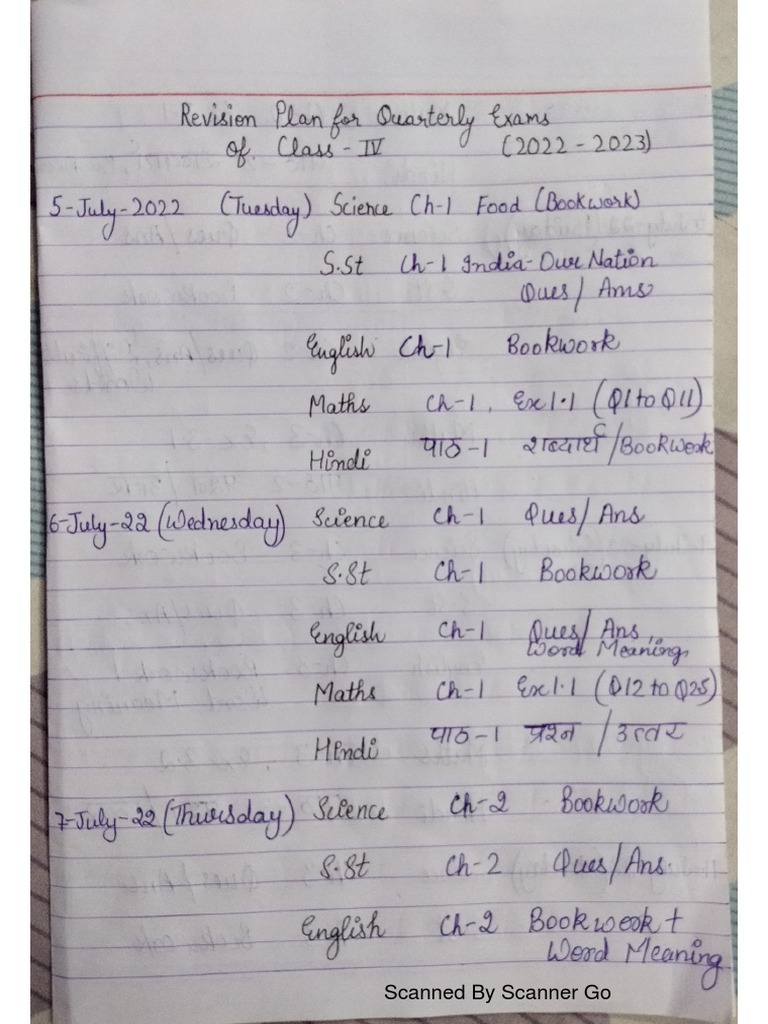 Revision Plan for Quarterly Exams
of Class - IV (2022 - 2023)
5-July-2022 (Tuesday) Science Ch-1 Food (Bookwork)
S.St Ch-1 India-Our Nation
Ques/ Ans
English Ch-1 Bookwork
Maths Ch-1, Ex 1.1 (Q1 to Q11)
Hindi पाठ-1 शब्दार्थ/Bookwork
6-July-22 (Wednesday) Science Ch-1 Ques/ Ans
S.St Ch-1 Bookwork
English Ch-1 Ques/ Ans,
Word Meaning,
Maths Ch-1 Ex 1.1 (Q12 to Q25)
Hindi पाठ-1 प्रश्न /उत्तर
7-July-22 (Thursday) Science Ch-2 Bookwork
S.St Ch-2 Ques/Ans.
English Ch-2 Bookwork +
Word Meaning
Scanned By Scanner Go